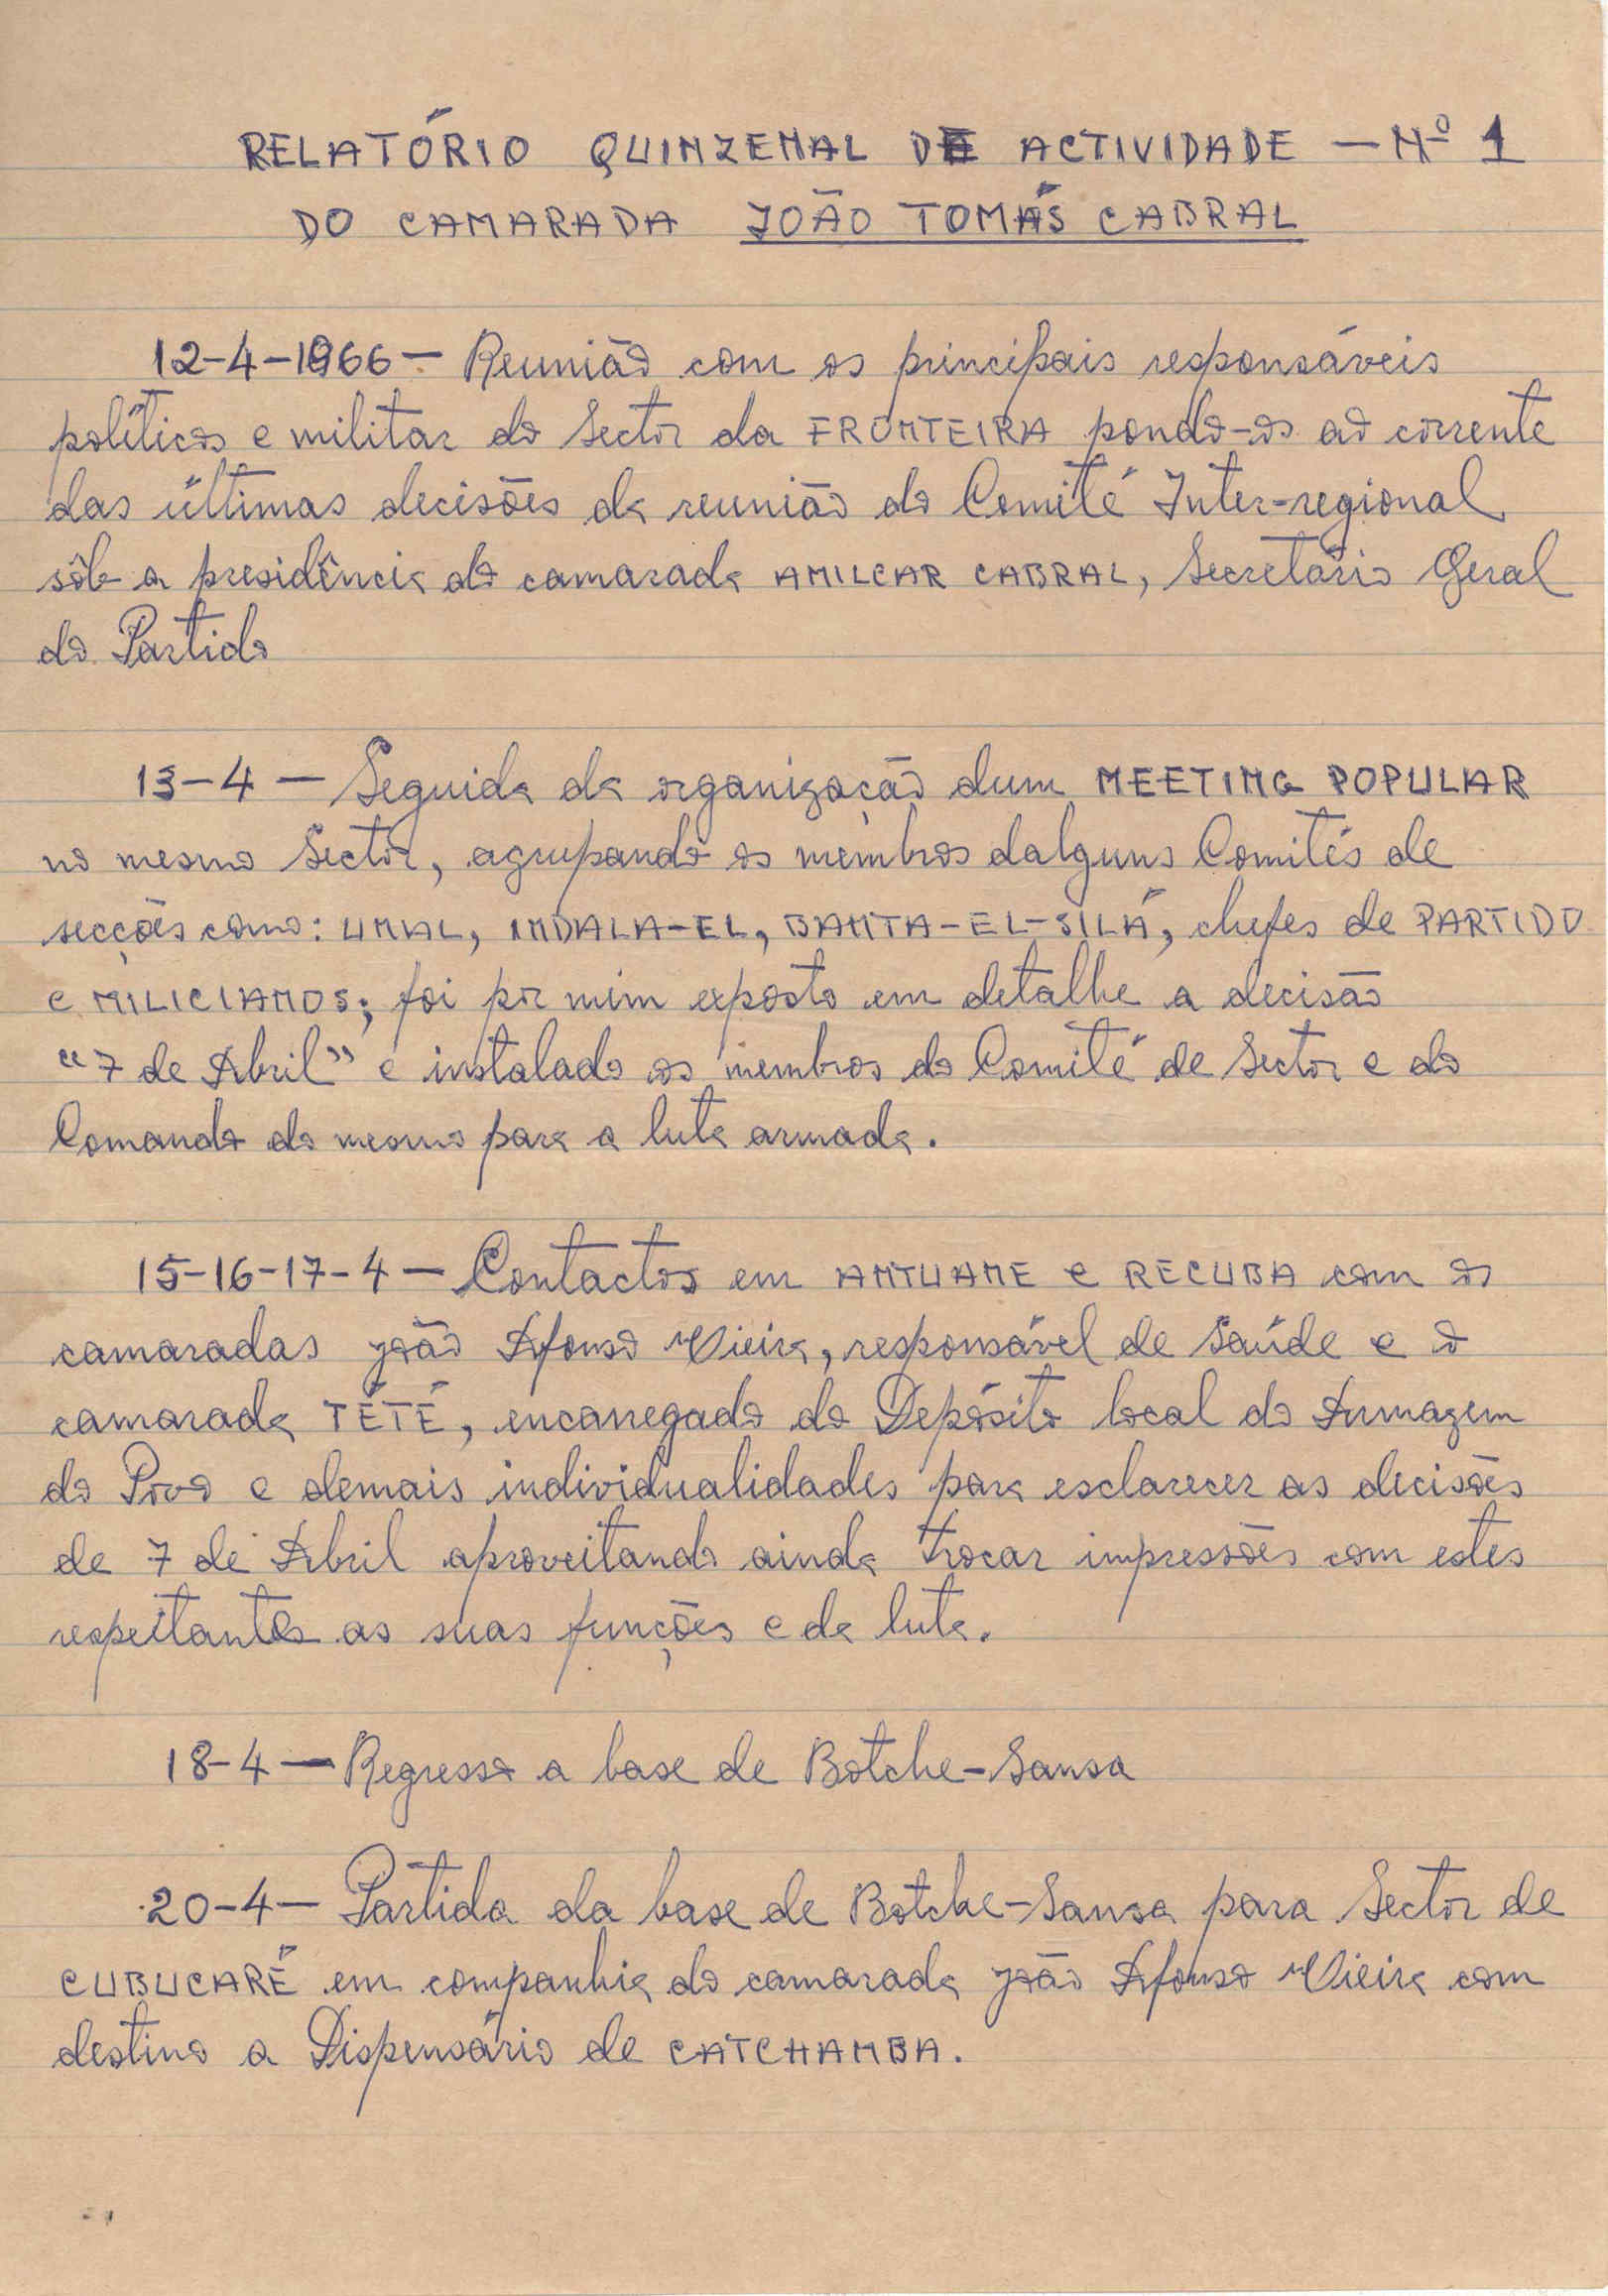 RELATÓRIO QUINZENAL DE ACTIVIDADE — Nº 1
DO CAMARADA JOÃO TOMÁS CABRAL
12-4-1966 — Reunião com os principais responsáveis
políticos e militar do Sector da FRONTEIRA pondo-os ao corrente
das últimas decisões da reunião do Comité Inter-regional
sôb a presidência do camarada AMILCAR CABRAL, Secretário Geral
do Partido
13-4 — Seguida da organização dum MEETING POPULAR
no mesmo Sector, agrupando os membros dalguns Comités de
secções como: UNAL, INDALA-EL, BANTA-EL-SILÁ, chefes de PARTIDO
e MILICIANOS; foi por mim exposto em detalhe a decisão
"7 de Abril" e instalado os membros do Comité de Sector e do
Comando do mesmo para a luta armada.
15-16-17-4 — Contactos em ANTUANE e RECUBA com os
camaradas João Afonso Vieira, responsável de Saúde e o
camarada TÉTÉ, encarregado do Depósito local do Armazem
do Povo e demais individualidades para esclarecer as decisões
de 7 de Abril aproveitando ainda trocar impressões com estes
respeitantes as suas funções e da luta.
18-4 — Regresso a base de Botche-Sansa
20-4 — Partida da base de Botche-Sansa para Sector de
CUBUCARÉ em companhia do camarada João Afonso Vieira com
destino a Dispensário de CATCHAMBA.